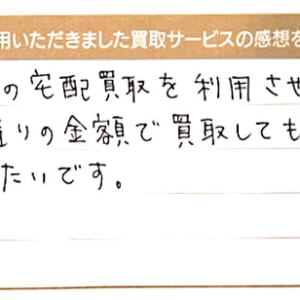 用いただきました買取サービスの感想を
の宅配買取を利用させ
りの金額で買取しても
たいです。